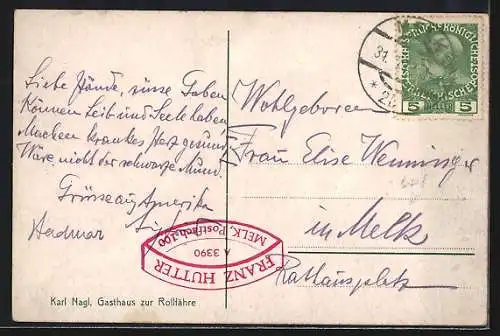 Liebe Hände, süsse Gaben
Können Leib und Seele haben
Machen krankes Herz gesund
Wäre nicht der schwarze Mund.
Grüsse aus Amerika
Hadmar
Wohlgeboren
Frau Elise Wenninger
in Melk
Rathausplatz
31.
5 5
FRANZ HUTTER
A 3390
MELK, Postfach 100
Karl Nagl, Gasthaus zur Rollfähre